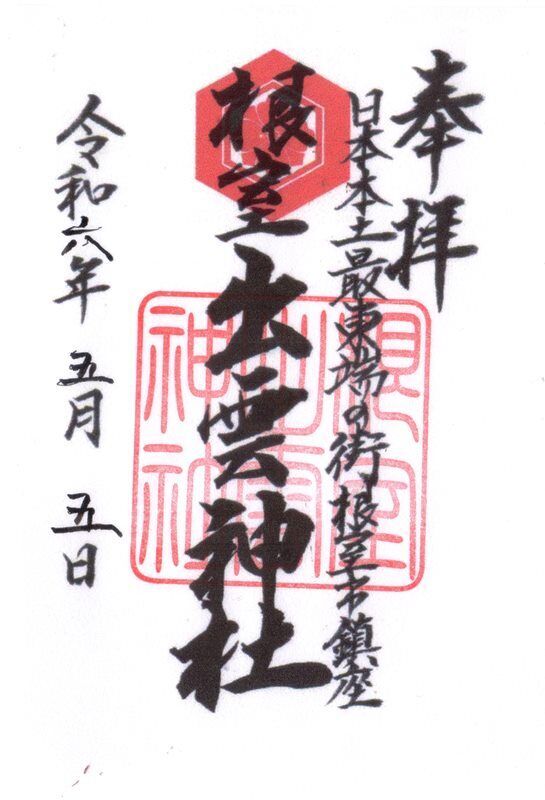 奉拝
日本本土最東端の街根室市鎮座
根室出雲神社
根室出雲神社
令和六年 五月 五日